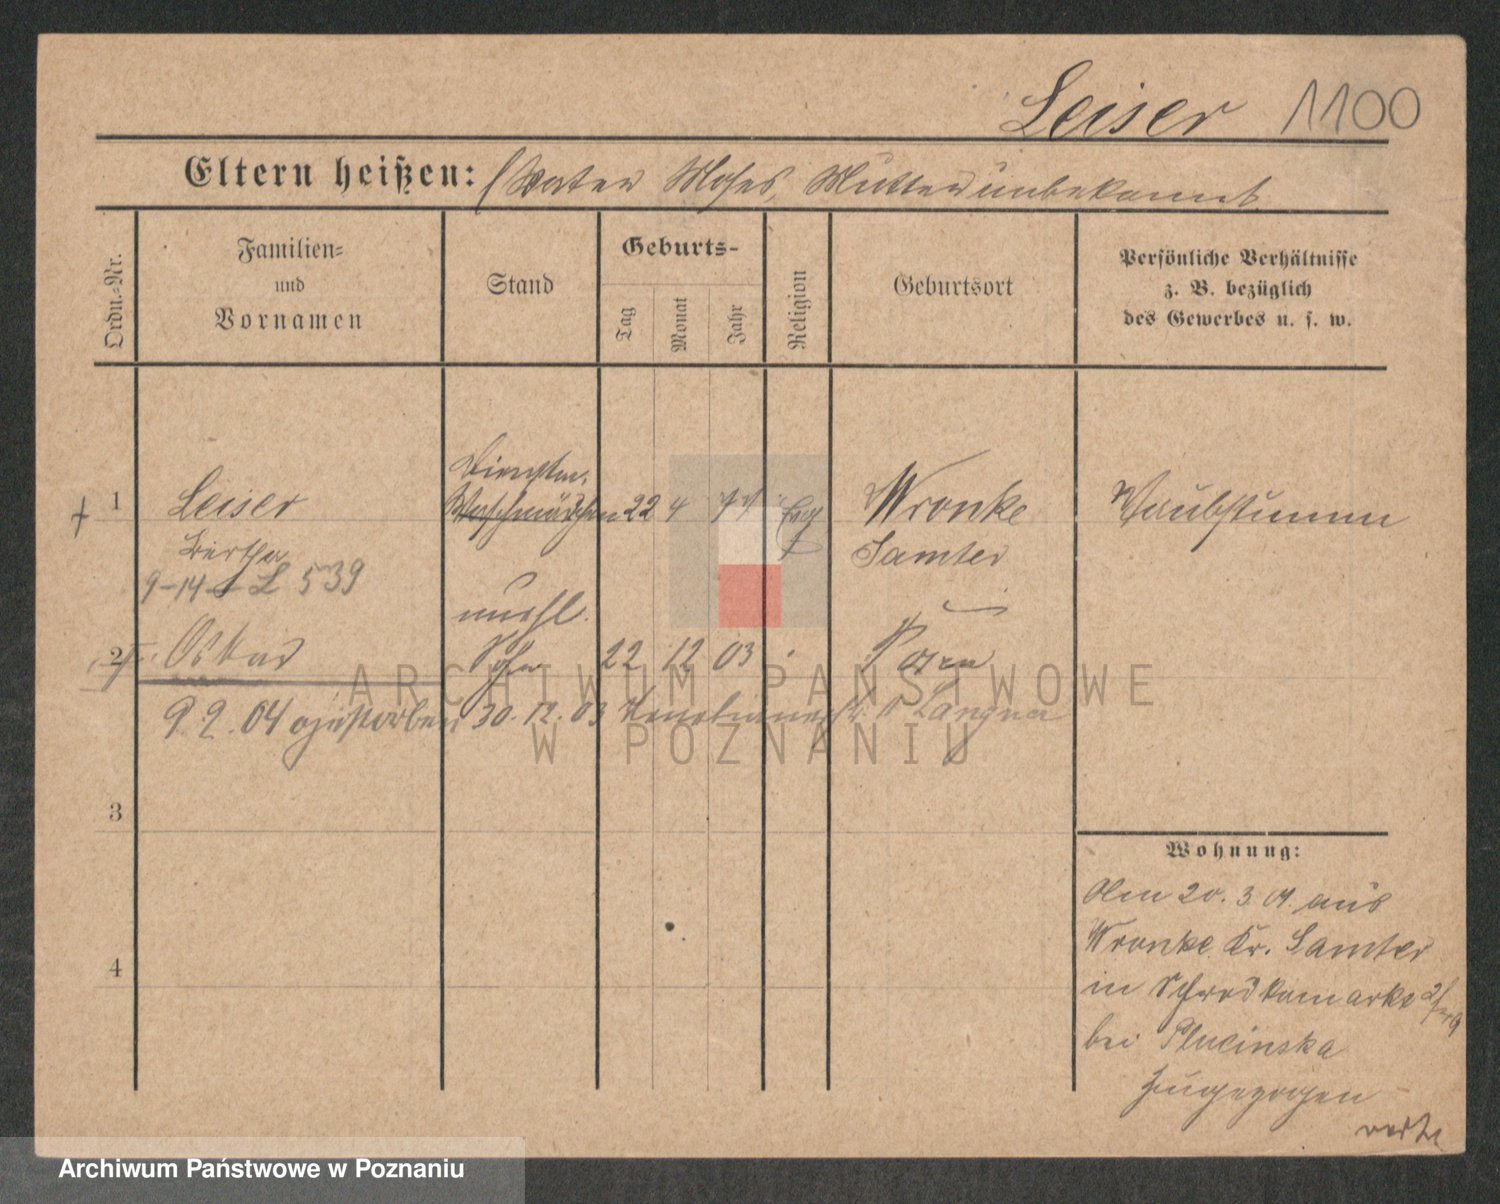 Leiser 1100
Eltern heißen: (Vater Moses, Mutter unbekannt
Ordn.-Nr.
Familien-
und
Vornamen
Stand
Geburts-
Tag
Monat
Jahr
Religion
Geburtsort
Persönliche Verhältnisse
z. B. bezüglich
des Gewerbes u. s. w.
1 Leiser 22 4 Wronke Taubstumm
Bertha Samter
9-14 L 539
unehl.
2 Oskar Sohn 22 12 03 Posen
9.2.04 30.12.03
3
4
Wohnung:
Am 20.3.01 aus
Wronke Kr. Samter
in Schrodkamarkt
bei Plucinska
zugezogen
ARCHIWUM PAŃSTWOWE
W POZNANIU
Archiwum Państwowe w Poznaniu